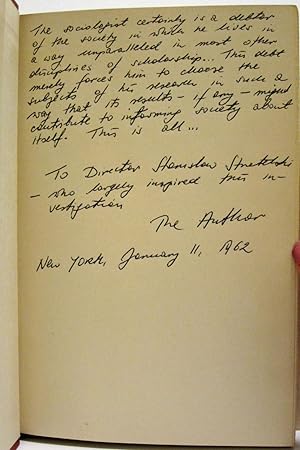 The sociologist certainly is a debtor
of the society in which he lives in
a way unparalleled in most other
disciplines of scholarship... This debt
merely forces him to choose the
subjects of his research in such a
way that its results - if any - might
contribute to informing society about
itself. This is all...
To Director Stanislaw
- who largely inspired this in-
vestigation
The Author
New York, January 11, 1962